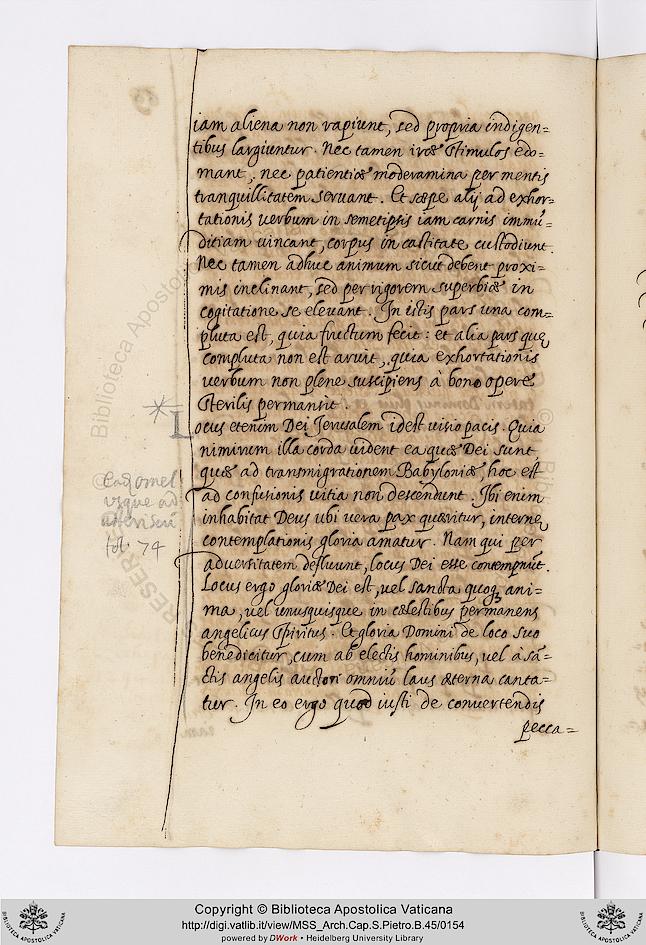 iam aliena non rapiunt, sed propria indigen=
tibus largiuntur. Nec tamen iræ stimulos edo=
mant, nec patientiæ moderamina per mentis
tranquillitatem servant. Et sæpe alij ad exhor=
tationis verbum in semetipsis iam carnis immũ=
ditiam vincant, corpus in castitate custodiunt.
Nec tamen adhuc animum sicut debent proxi=
mis inclinant, sed per rigorem superbiæ in
cogitatione se elevant. In istis pars una com=
pluta est, quia fructum fecit: et alia pars quę
compluta non est aruit, quia exhortationis
verbum non plene suscipiens à bono opere
sterilis permansit.
Locus etenim Dei Jerusalem idest visio pacis. Quia
nimirum illa corda vident ea quæ Dei sunt,
quæ ad transmigrationem Babyloniæ, hoc est
ad confusionis vitia non descendunt. Ibi enim
inhabitat Deus ubi vera pax quæritur, internę
contemplationis gloria amatur. Nam qui per
adversitatem defluunt, locus Dei esse contemnũt.
Locus ergo gloriæ Dei est, vel sancta quoq; ani=
ma, vel unusquisque in cælestibus permanens
angelicus spiritus. Et gloria Domini de loco suo
benedicitur, cum ab electis hominibus, vel à sã=
ctis angelis auctori omniũ laus æterna canta=
tur. In eo ergo quod iusti de convertendis
pecca=
usque ad
fol. 74
Copyright © Biblioteca Apostolica Vaticana
http://digi.vatlib.it/view/MSS_Arch.Cap.S.Pietro.B.45/0154
powered by DWork • Heidelberg University Library